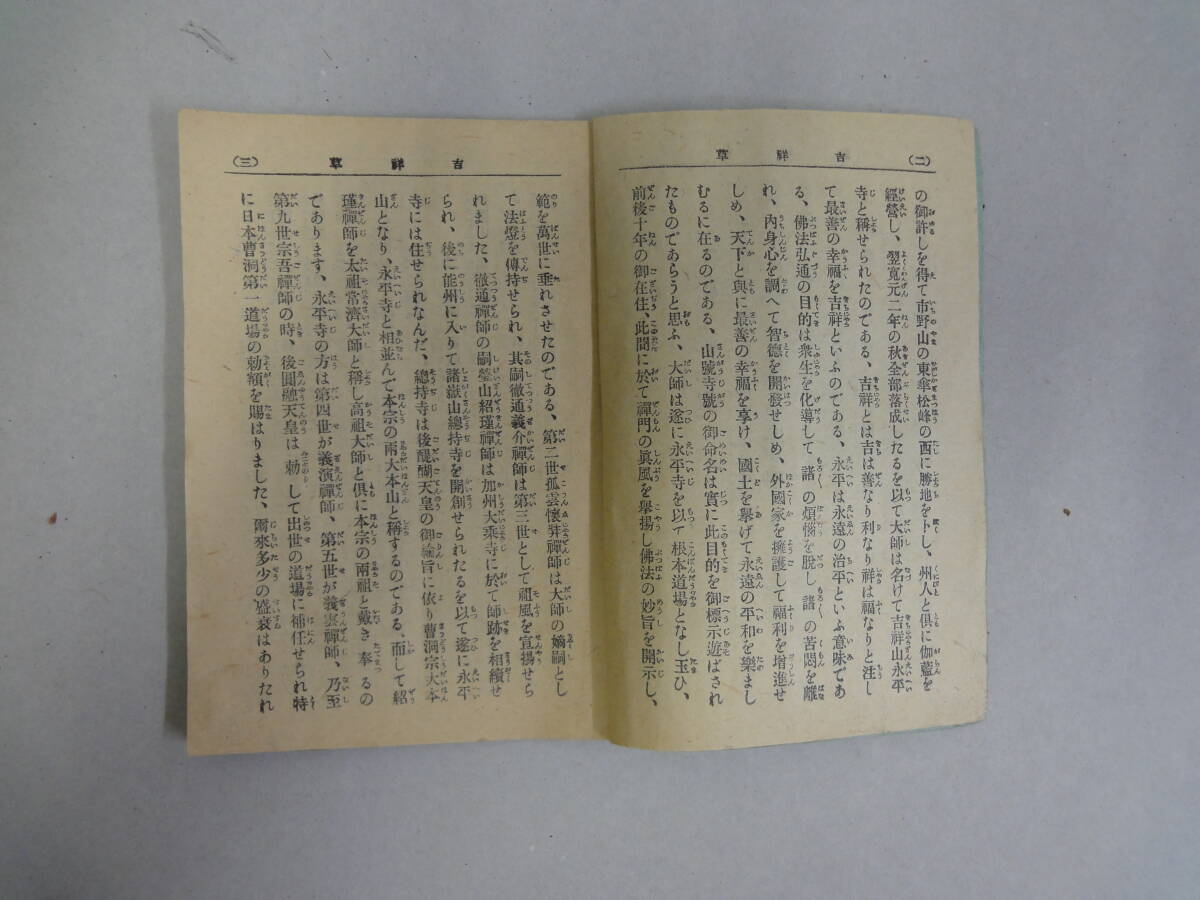 (二) 吉祥草
の御許しを得て市野山の東傘松峰の西に勝地を卜し、州人と俱に伽藍を
經營し、翌寛元二年の秋全部落成したるを以て大師は名けて吉祥山永平
寺と稱せられたのである、吉祥とは吉は善なり利なり祥は福なりと注し
て最善の幸福を吉祥といふのである、永平は永遠の治平といふ意味であ
る、佛法弘通の目的は衆生を化導して諸の煩惱を脱し諸の苦悶を離
れ、內身心を調へて智德を開發せしめ、外國家を擁護して福利を增進せ
しめ、天下と與に最善の幸福を享け、國土を擧げて永遠の平和を樂まし
むるに在るのである、山號寺號の御命名は實に此目的を御標示遊ばされ
たものであらうと思ふ、大師は遂に永平寺を以て根本道場となし玉ひ、
前後十年の御在住、此間に於て禪門の眞風を擧揚し佛法の妙旨を開示し、
吉祥草 (三)
範を萬世に垂れさせたのである、第二世孤雲懷弉禪師は大師の嫡嗣とし
て法燈を傳持せられ、其嗣徹通義介禪師は第三世として祖風を宣揚せら
れました、徹通禪師の嗣瑩山紹瑾禪師は加州大乘寺に於て師跡を相續せ
られ、後に能州に入りて諸嶽山總持寺を開創せられたるを以て遂に永平
寺には住せられなんだ、總持寺は後醍醐天皇の御綸旨に依り曹洞宗大本
山となり、永平寺と相並んで本宗の兩大本山と稱するのである、而して紹
瑾禪師を太祖常濟大師と稱し高祖大師と俱に本宗の兩祖と戴き奉るの
であります、永平寺の方は第四世が義演禪師、第五世が義雲禪師、乃至
第九世宗吾禪師の時、後圓融天皇は勅して出世の道場に補任せられ特
に日本曹洞第一道場の勅額を賜はりました、爾來多少の盛衰はありたれ